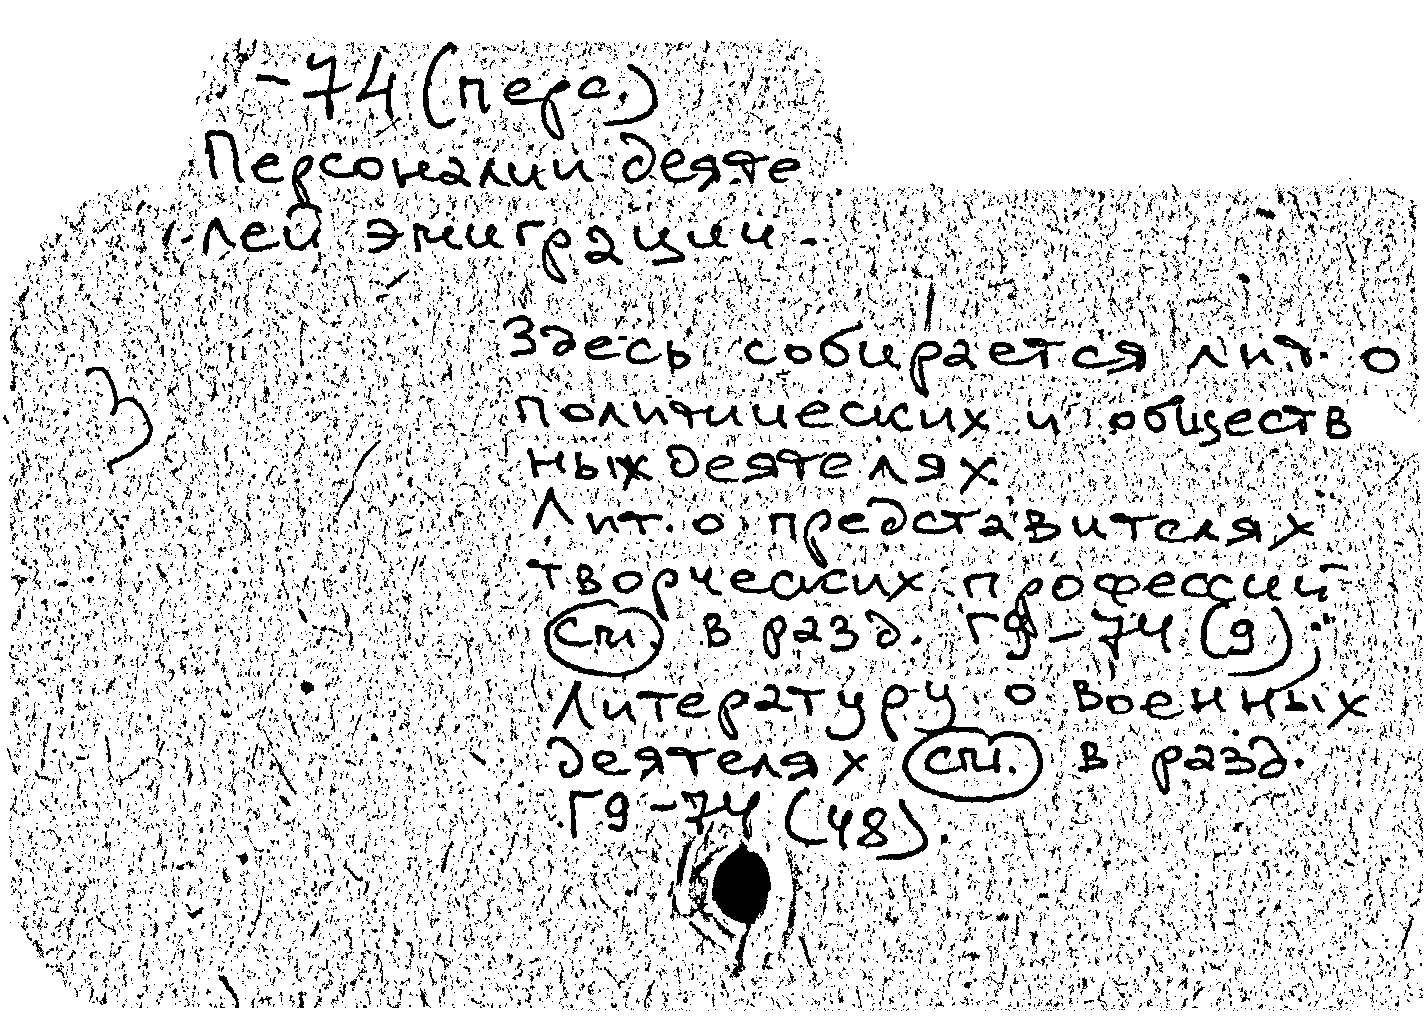 -74 (перс.)
Персоналии деяте
лей эмиграции.
Здесь собирается лит. о
политических и обществ
ных деятелях
Лит. о представителях
творческих профессий
см. в разд. Г9-74 (9);
Литературу о военных
деятелях см. в разд.
Г9-74 (48).